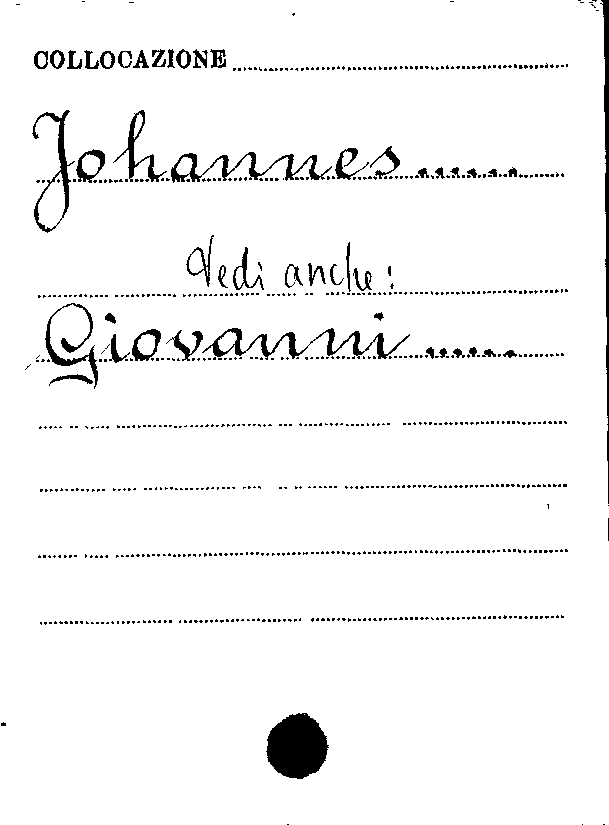 COLLOCAZIONE
Johannes ......
Vedi anche:
Giovanni ......